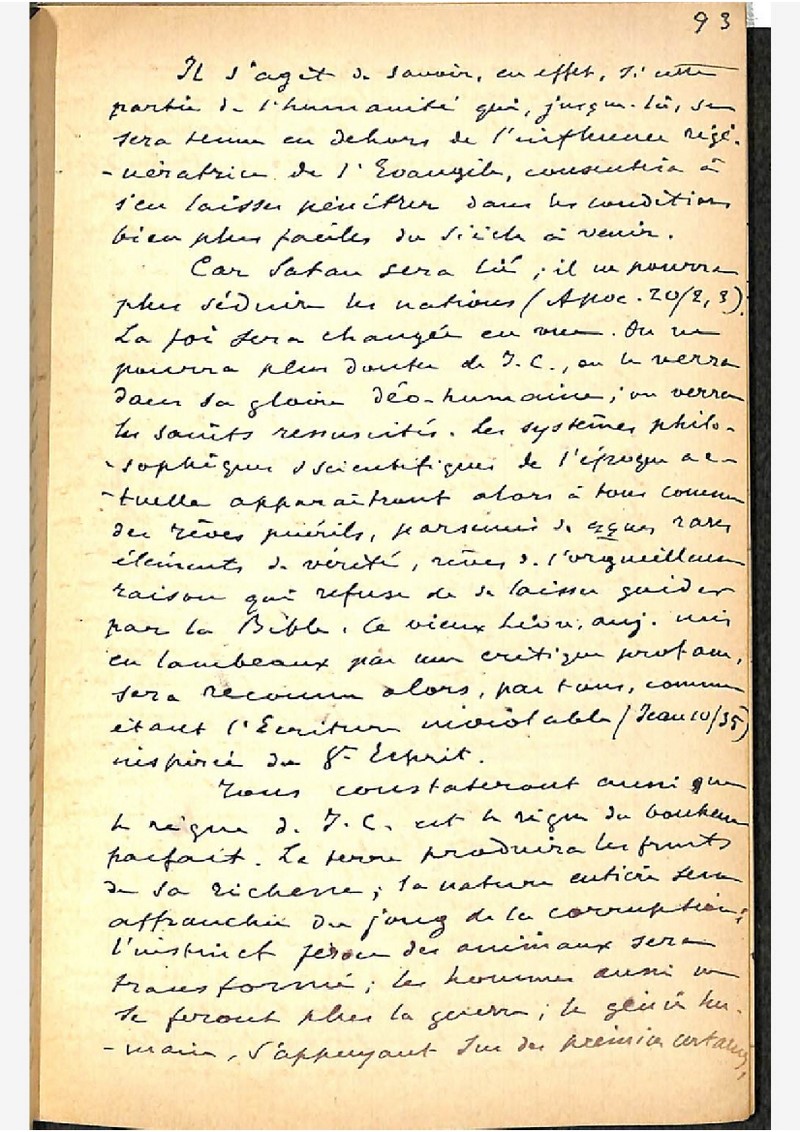 93
Il s'agit de savoir, en effet, si cette
partie de l'humanité qui, jusque-là, se
sera tenue en dehors de l'influence régé-
-nératrice de l'Evangile, consentira à
s'en laisser pénétrer dans les conditions
bien plus faciles du siècle à venir.
Car Satan sera lié ; il ne pourra
plus séduire les nations (Apoc. 20/2, 3).
La foi sera changée en vue. On ne
pourra plus douter de J.C., on le verra
dans sa gloire déo-humaine ; on verra
les saints ressuscités. Les systèmes philo-
-sophiques & scientifiques de l'époque ac-
-tuelle apparaîtront alors à tous comme
des rêves puérils, parsemés de qques rares
éléments de vérité, rêves de l'orgueilleuse
raison qui refuse de se laisser guider
par la Bible. Ce vieux Livre, auj. mis
en lambeaux par une critique profane,
sera reconnu alors, par tous, comme
étant l'Ecriture inviolable (Jean 10/35)
inspirée du St Esprit.
Tous constateront aussi que
le règne de J.C. est le règne du bonheur
parfait. La terre produira les fruits
de sa richesse ; la nature entière sera
affranchie du joug de la corruption ;
l'instinct féroce des animaux sera
transformé ; les hommes aussi ne
se feront plus la guerre ; le génie hu-
-main, s'appuyant sur des prémices certaines,